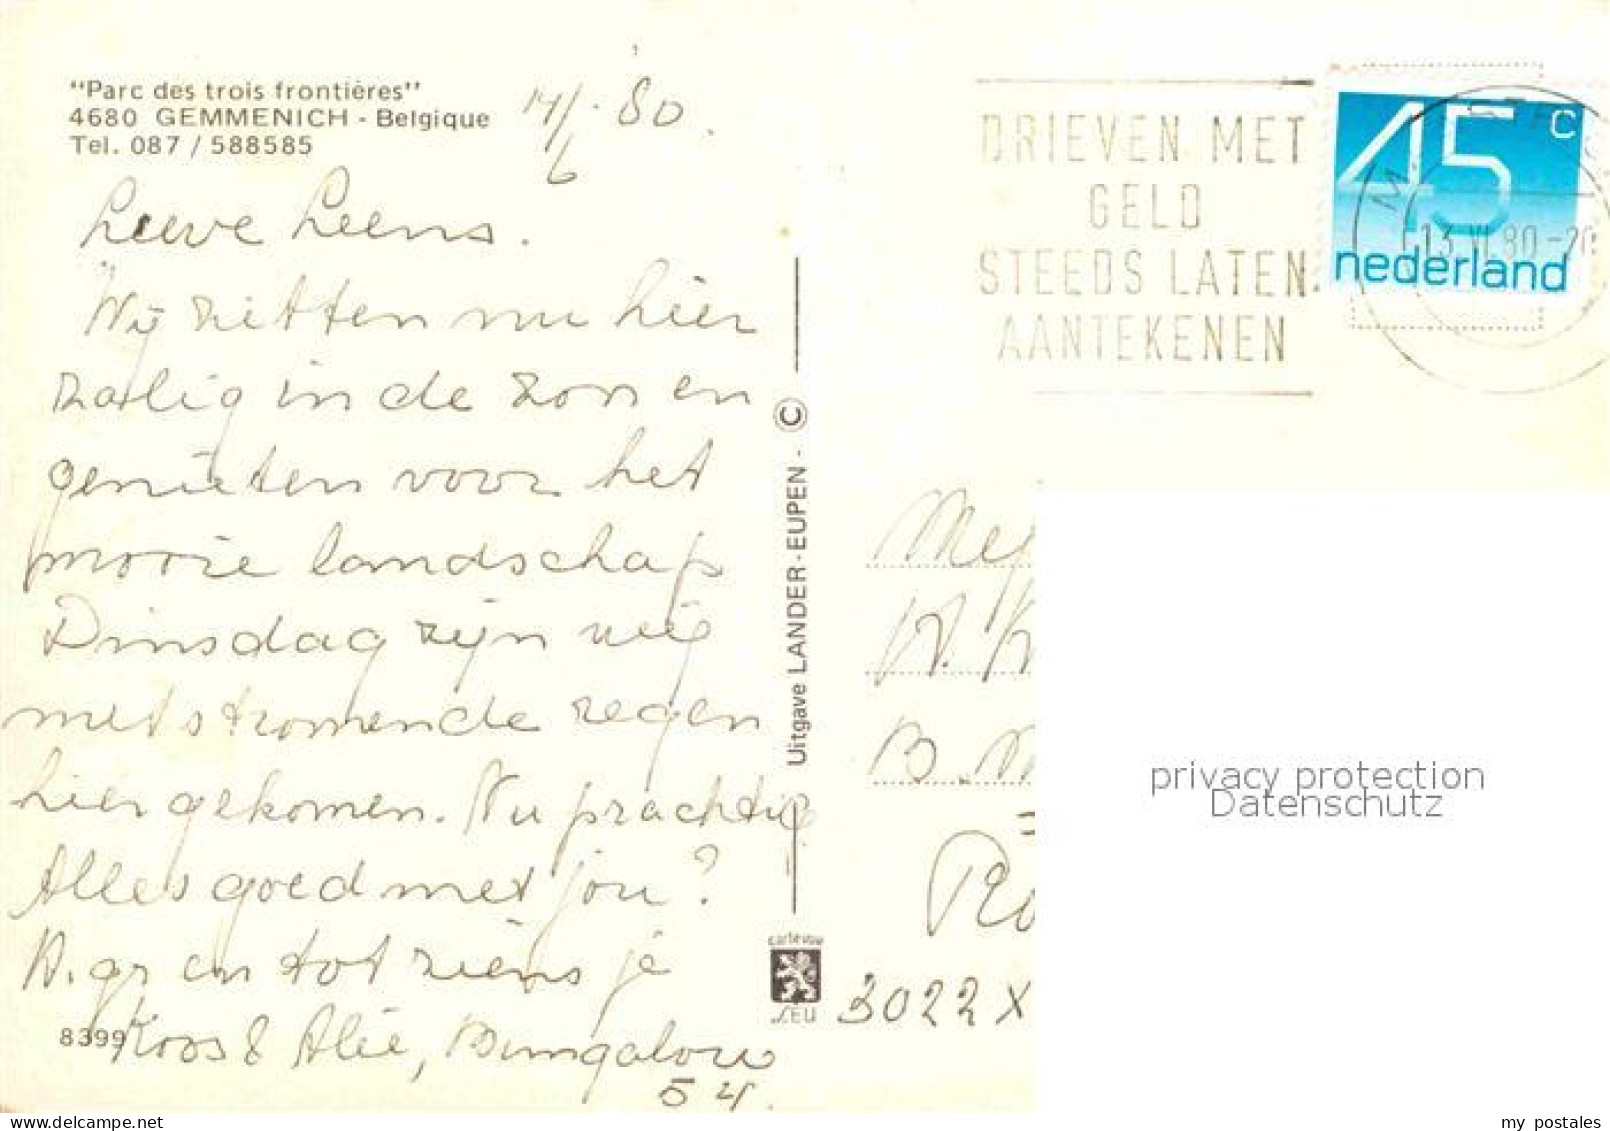 "Parc des trois frontières"
4680 GEMMENICH - Belgique
Tel. 087 / 588585
14/6 .80.
Lieve Leens.
Wij zitten nu hier
zalig in de zon en
genieten voor het
mooie landschap
Dinsdag zijn wij
met stromende regen
hier gekomen. Nu prachtig
Alles goed met jou?
H. gr en tot ziens je
Koos & Alie, Bungalow
54.
8399
Uitgave LANDER-EUPEN - ©
cartevue
BRIEVEN MET
GELD
STEEDS LATEN
AANTEKENEN
45 c
nederland
13 VI 80 - 20
Mej
B. M
Ro
3022 X
privacy protection
Datenschutz
my postales
https://www.delcampe.net